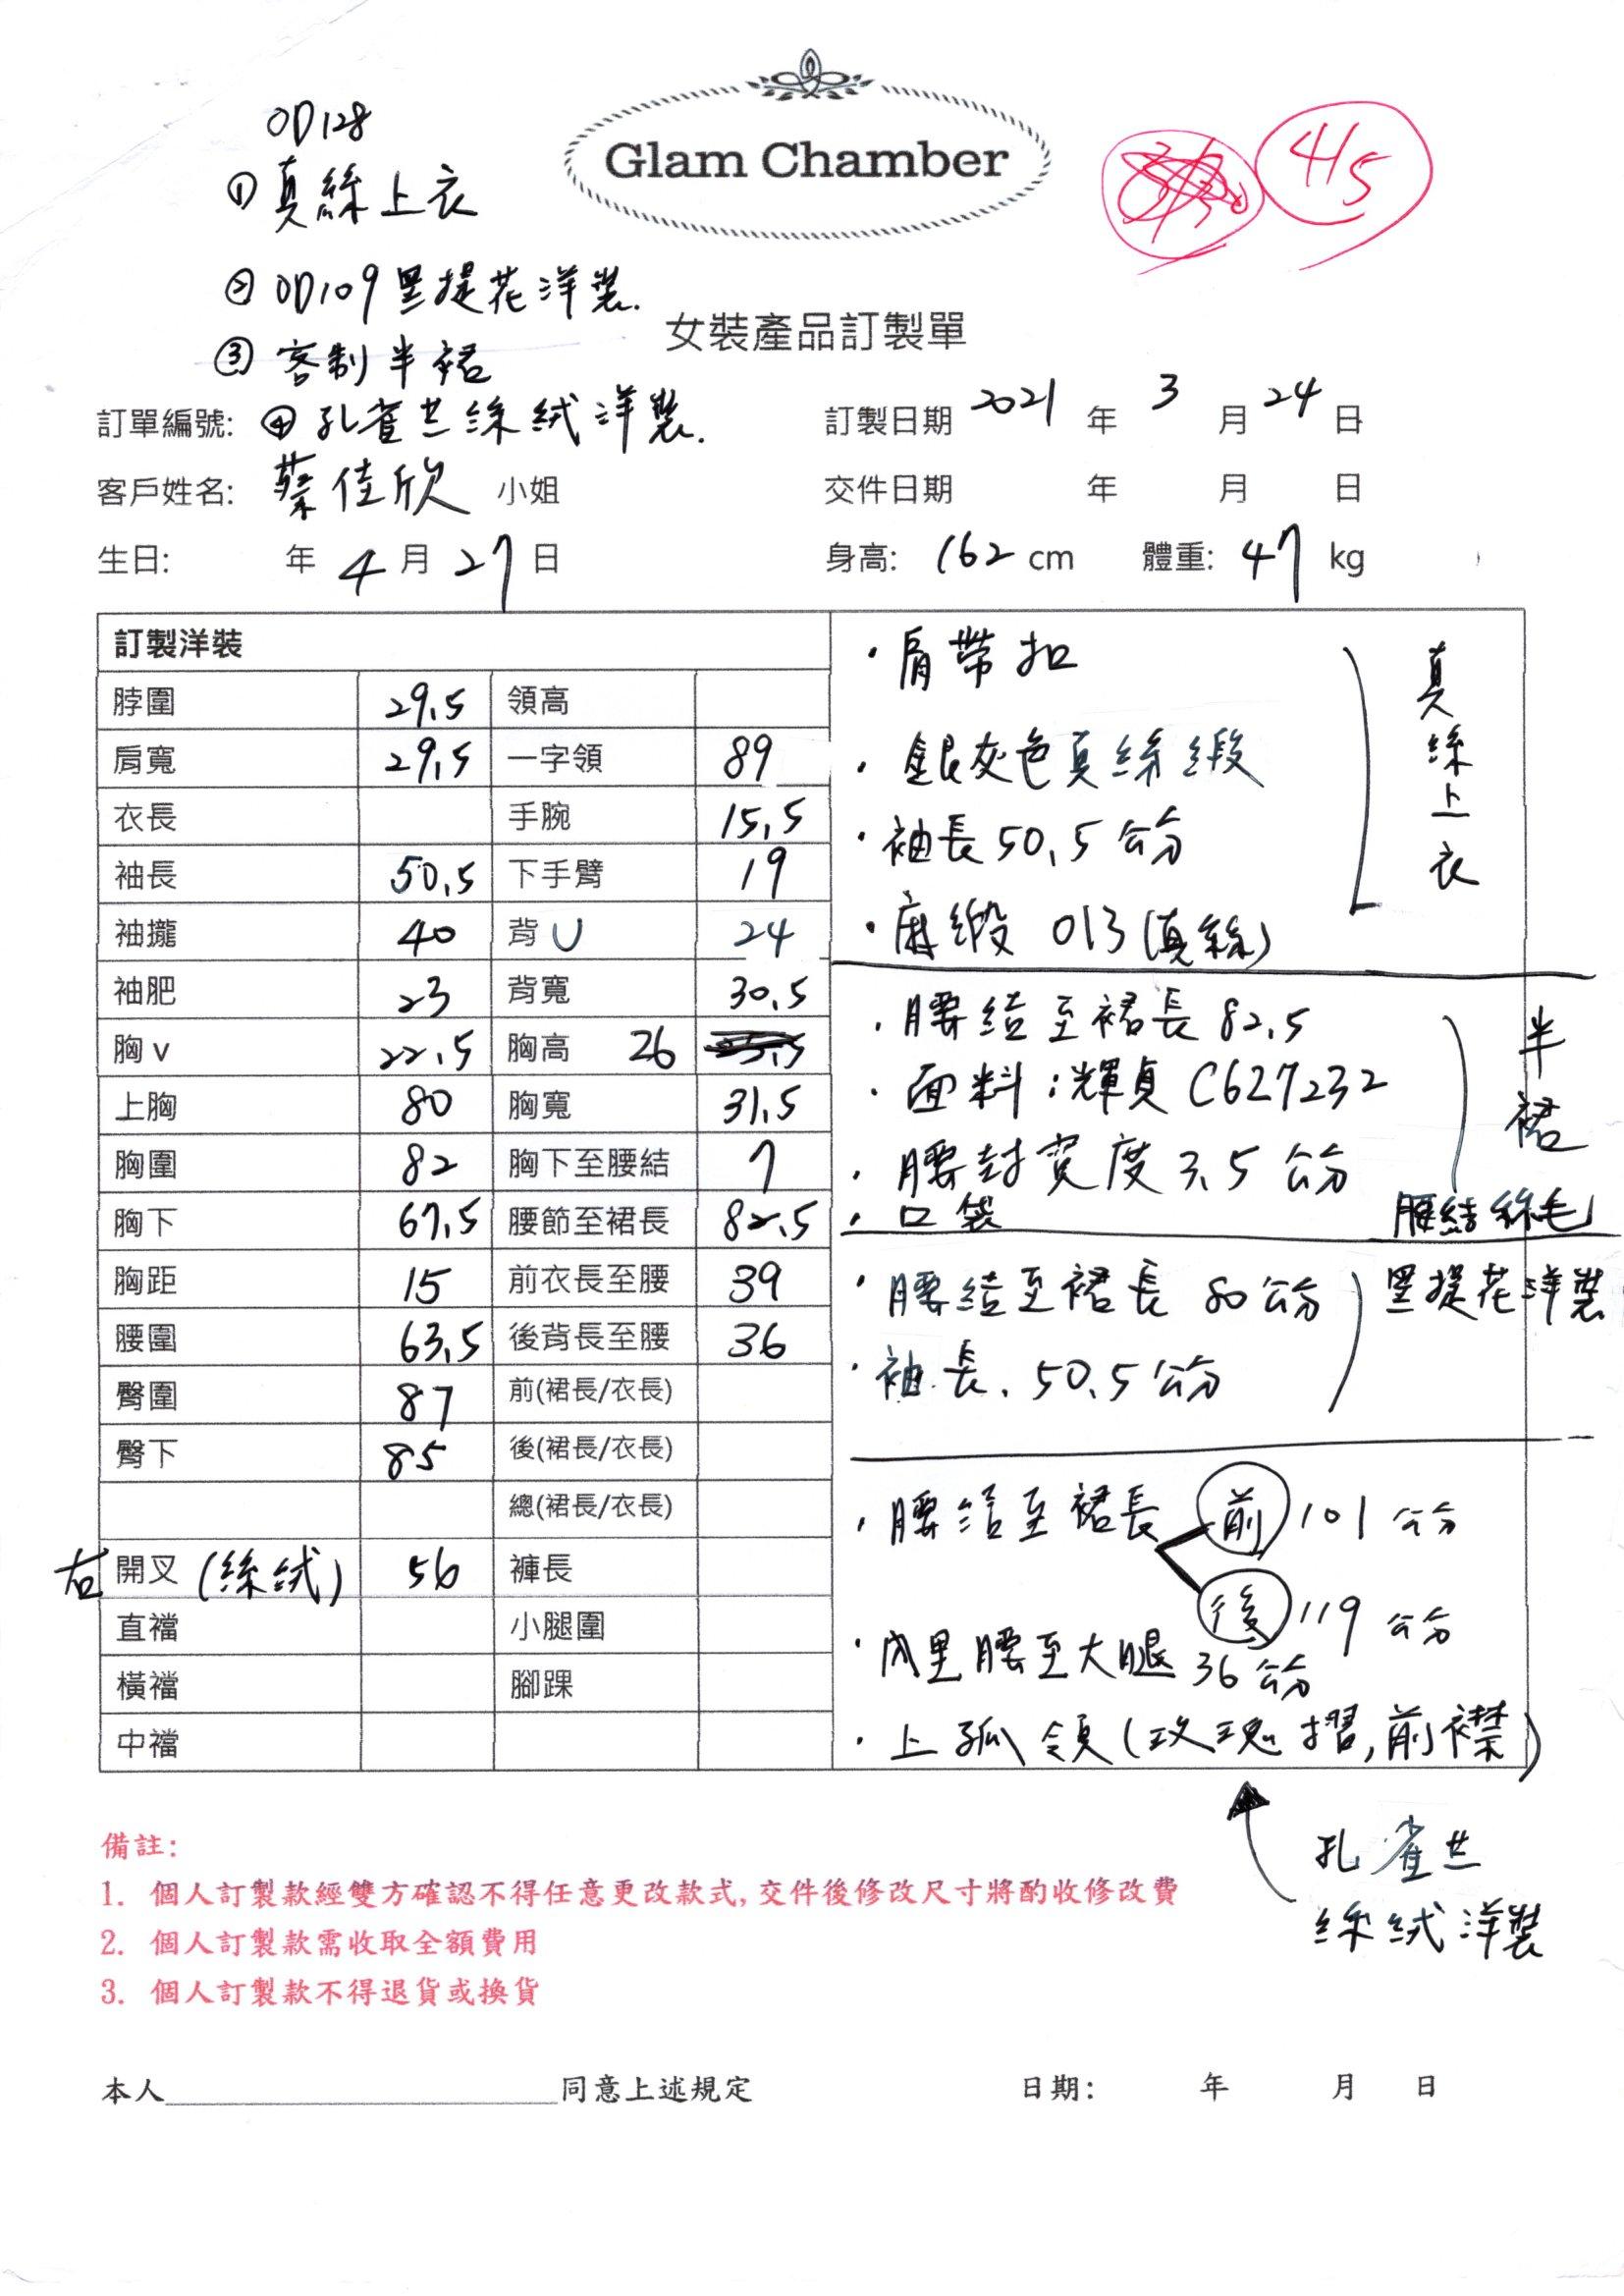 OD128
① 真絲上衣
② OD109 黑提花洋裝.
③ 客制半裙
Glam Chamber
4/5
女裝產品訂製單
訂單編號: ④ 孔雀芘絲絨洋裝.
訂製日期 2021 年 3 月 24 日
客戶姓名: 蔡佳欣 小姐
交件日期 年 月 日
生日: 年 4 月 27 日
身高: 162 cm 體重: 47 kg
訂製洋裝
脖圍 29.5 領高
肩寬 29.5 一字領 89
衣長 手腕 15.5
袖長 50.5 下手臂 19
袖攏 40 背U 24
袖肥 23 背寬 30.5
胸v 22.5 胸高 26
上胸 80 胸寬 31.5
胸圍 82 胸下至腰結 7
胸下 67.5 腰節至裙長 82.5
胸距 15 前衣長至腰 39
腰圍 63.5 後背長至腰 36
臀圍 87 前(裙長/衣長)
臀下 85 後(裙長/衣長)
總(裙長/衣長)
右 開叉 (絲絨) 56 褲長
直襠 小腿圍
橫襠 腳踝
中襠
・肩帶扣
・銀灰色真絲緞
・袖長 50.5 公分
・麻緞 013 (真絲)
真絲上衣
・腰結至裙長 82.5
・面料:輝貞 C627232
・腰封寬度 3.5 公分
・口袋
半裙
腰結絲毛
・腰結至裙長 80 公分
・袖長. 50.5 公分
黑提花洋裝
・腰結至裙長 前 101 公分
後 119 公分
・內里腰至大腿 36 公分
・上孤領(玫瑰摺,前襟)
孔雀芘
絲絨洋裝
備註:
1. 個人訂製款經雙方確認不得任意更改款式, 交件後修改尺寸將酌收修改費
2. 個人訂製款需收取全額費用
3. 個人訂製款不得退貨或換貨
本人 同意上述規定
日期: 年 月 日